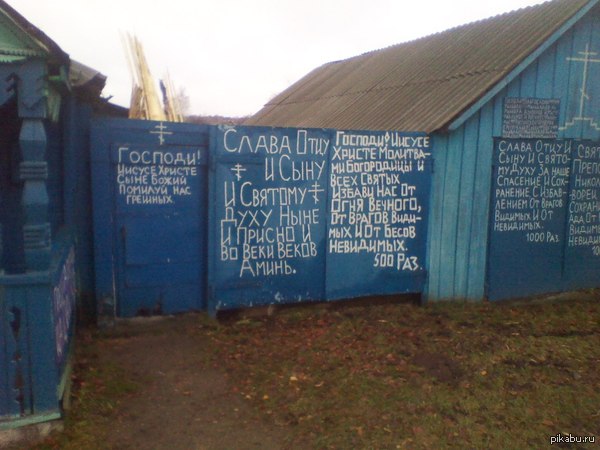 Господи!
Иисусе Христе
Сыне Божий
Помилуй нас
грешных.
Слава Отцу
и Сыну
и Святому
Духу Ныне
и Присно и
во веки веков
Аминь.
Господи! Иисусе
Христе Молитва-
ми Богородицы и
всех Святых
Избави нас от
огня вечного,
от врагов види-
мых и от бесов
невидимых.
500 раз.
Слава Отцу и
Сыну и Свято-
му Духу за наше
спасение и сох-
ранение и избав-
лением от врагов
видимых и от
невидимых.
1000 раз.
Свят
Препо
Никол
Сохрани
1000
pikabu.ru